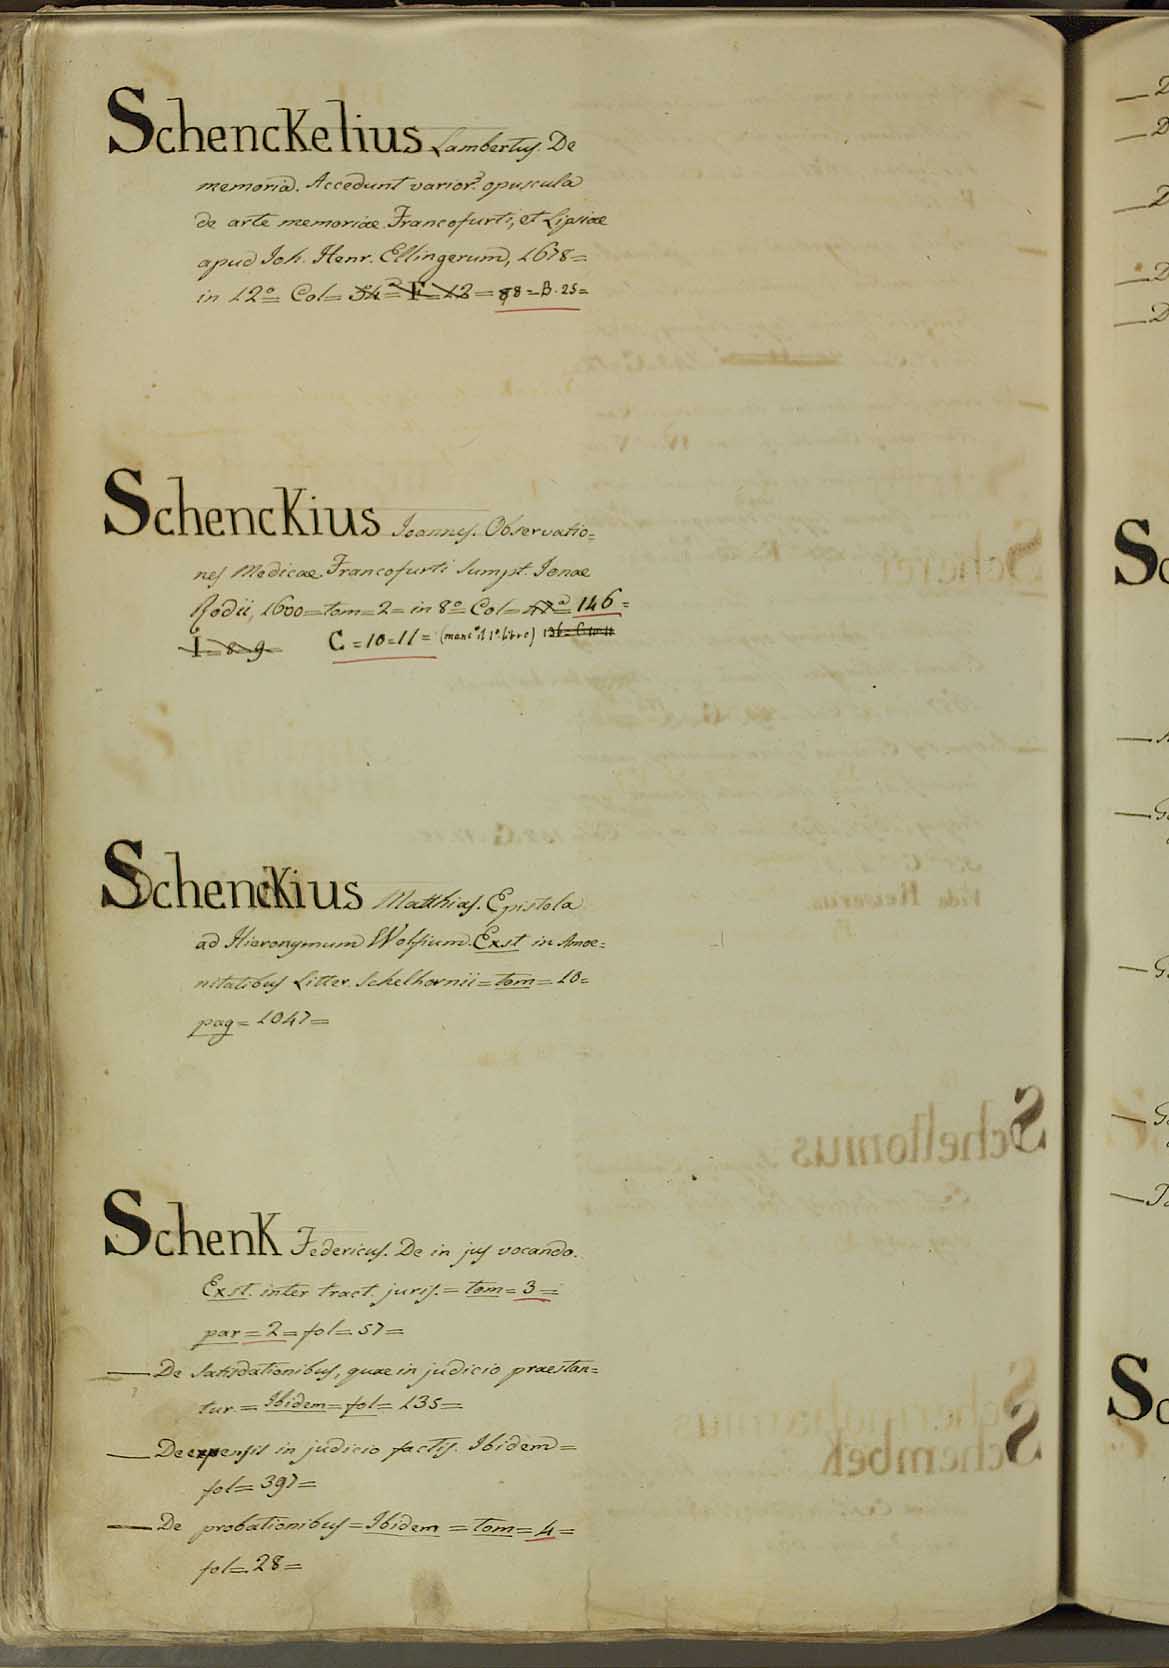 Schenckelius Lambertus. De
memoria. Accedunt varior. opuscula
de arte memoriae Francofurti, et Lipsiae
apud Joh. Henr. Ellingerum, 1678=
in 12º= Col= 54= F=12= 88=B.25=
Schenckius Joannes. Observatio=
nes Medicae. Francofurti Sumpt. Jonae
Rodii, 1600=tom=2=in 8º= Col= 146=
I=8=9= C=10=11= (manc.ª il 1º libro) 136=C.10.11
Schenckius Matthias. Epistola
ad Hieronymum Wolfium. Exst in Amoe=
nitatibus Litter. Schelhornii=tom=10=
pag=1047=
Schenk Federicus. De in jus vocando.
Exst. inter tract. juris.=tom=3=
par=2=fol=57=
— De Satisdationibus, quae in judicio praestan=
tur=Ibidem=fol=135=
— De expensis in judicio factis. Ibidem=
fol=397=
— De probationibus=Ibidem=tom=4=
fol=28=